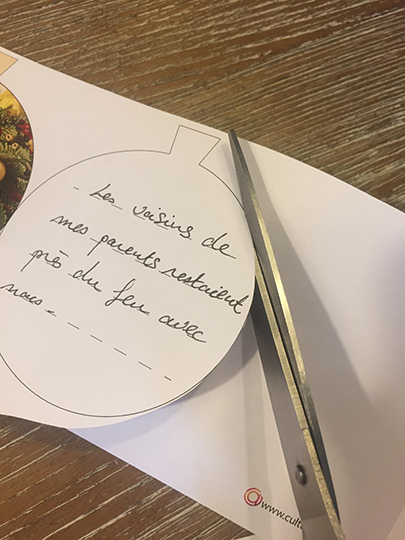 - Les voisins de
mes parents restaient
près du feu avec
nous - - - - - -
www.cult